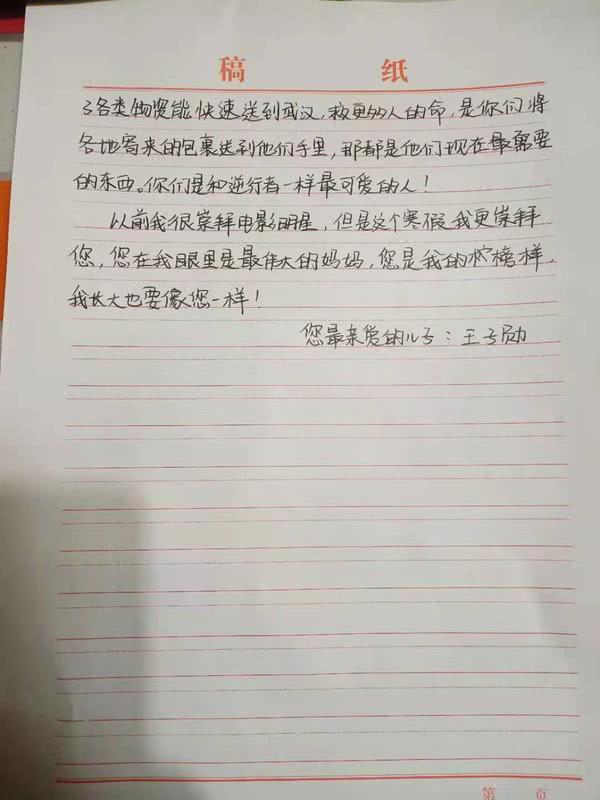 稿 纸
了各类物资能快速送到武汉，救更多人的命，是你们将
各地寄来的包裹送到他们手里，那都是他们现在最需要
的东西。你们是和逆行者一样最可爱的人！
以前我很崇拜电影明星，但是这个寒假我更崇拜
您，您在我眼里是最伟大的妈妈，您是我的榜样，
我长大也要像您一样！
您最亲爱的儿子：王子勋
第 页